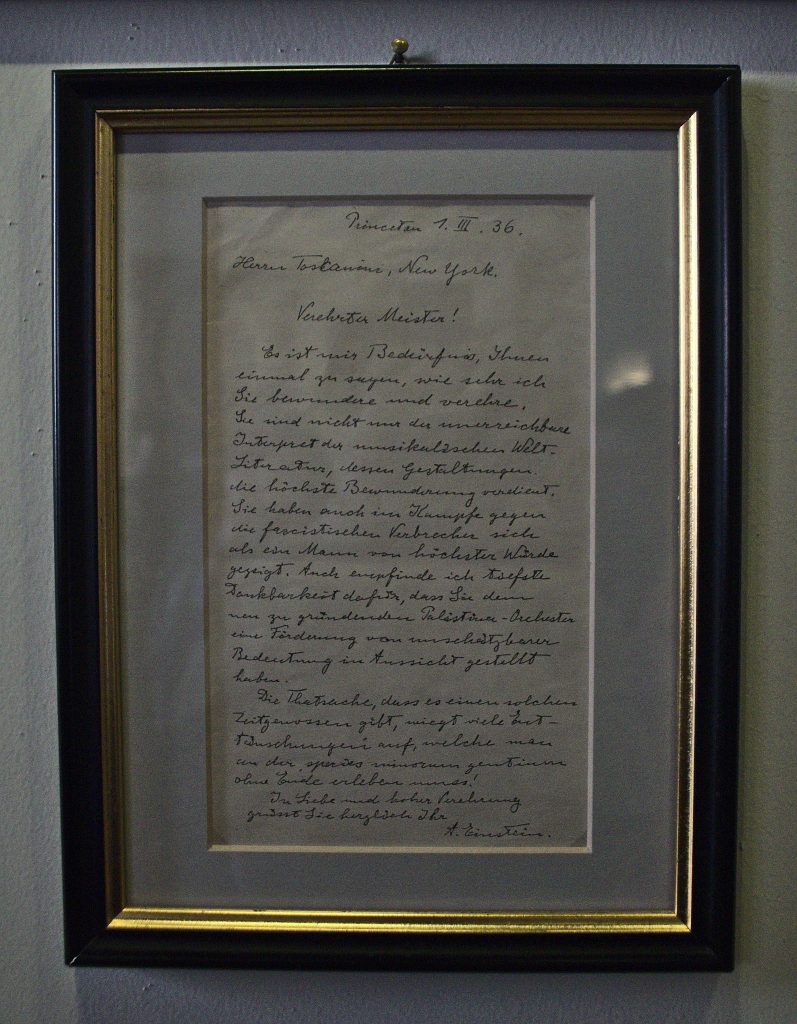 Princeton 1. III. 36.
Herrn Toskanini, New York.
Verehrter Meister!
Es ist mir Bedürfnis, Ihnen
einmal zu sagen, wie sehr ich
Sie bewundere und verehre.
Sie sind nicht nur der unerreichbare
Interpret der musikalischen Welt-
Literatur, dessen Gestaltungen
die höchste Bewunderung verdient.
Sie haben auch im Kampfe gegen
die fascistischen Verbrecher sich
als ein Mann von höchster Würde
gezeigt. Auch empfinde ich tiefste
Dankbarkeit dafür, dass Sie dem
neu zu gründenden Palästina-Orchester
eine Förderung von unschätzbarer
Bedeutung in Aussicht gestellt
haben.
Die Thatsache, dass es einen solchen
Zeitgenossen gibt, wiegt viele Ent-
täuschungen auf, welche man
an der species minorum gentium
ohne Ende erleben muss!
In Liebe und hoher Verehrung
grüsst Sie herzlich Ihr
A. Einstein.